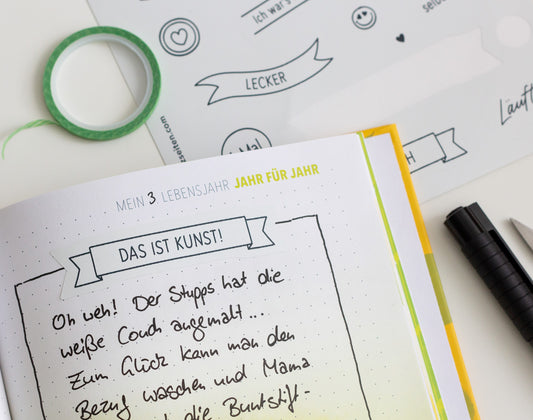 Ich war's
selbst
LECKER
Läuft
zseiten.com
Mal
H
MEIN 3 LEBENSJAHR JAHR FÜR JAHR
DAS IST KUNST!
Oh weh! Der Stupps hat die
weiße Couch angemalt...
Zum Glück kann man den
Bezug waschen und Mama
die Buntstift-